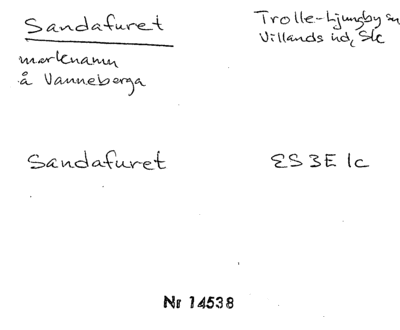 Sandafuret
Trolle-Ljungby sn
Villands hd, Sk
marknamn
å Vanneberga
Sandafuret
ES 3E 1c
Nr 14538